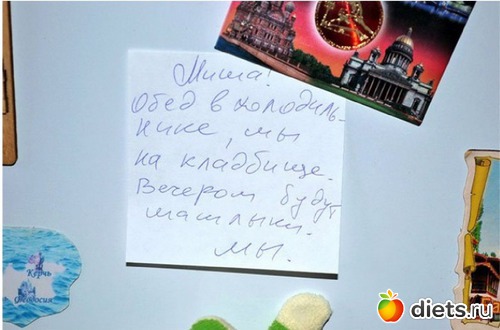 Миша!
Обед в холодиль-
нике, мы
на кладбище.
Вечером будут
шашлыки.
Мы.
Керчь
Феодосия
diets.ru